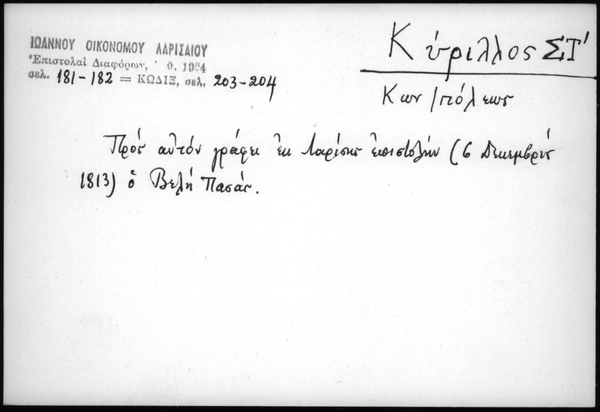 ΙΩΑΝΝΟΥ ΟΙΚΟΝΟΜΟΥ ΛΑΡΙΣΑΙΟΥ
Ἐπιστολαὶ Διαφόρων, 1964
σελ. 181-182 = ΚΩΔΙΞ, σελ. 203-204
Κύριλλος ΣΤ'
Κων/πόλεως
Πρός αὐτόν γράφει ἐκ Λαρίσης ἐπιστολήν (6 Δεκεμβρίου
1813) ὁ Βελῆ Πασάς.